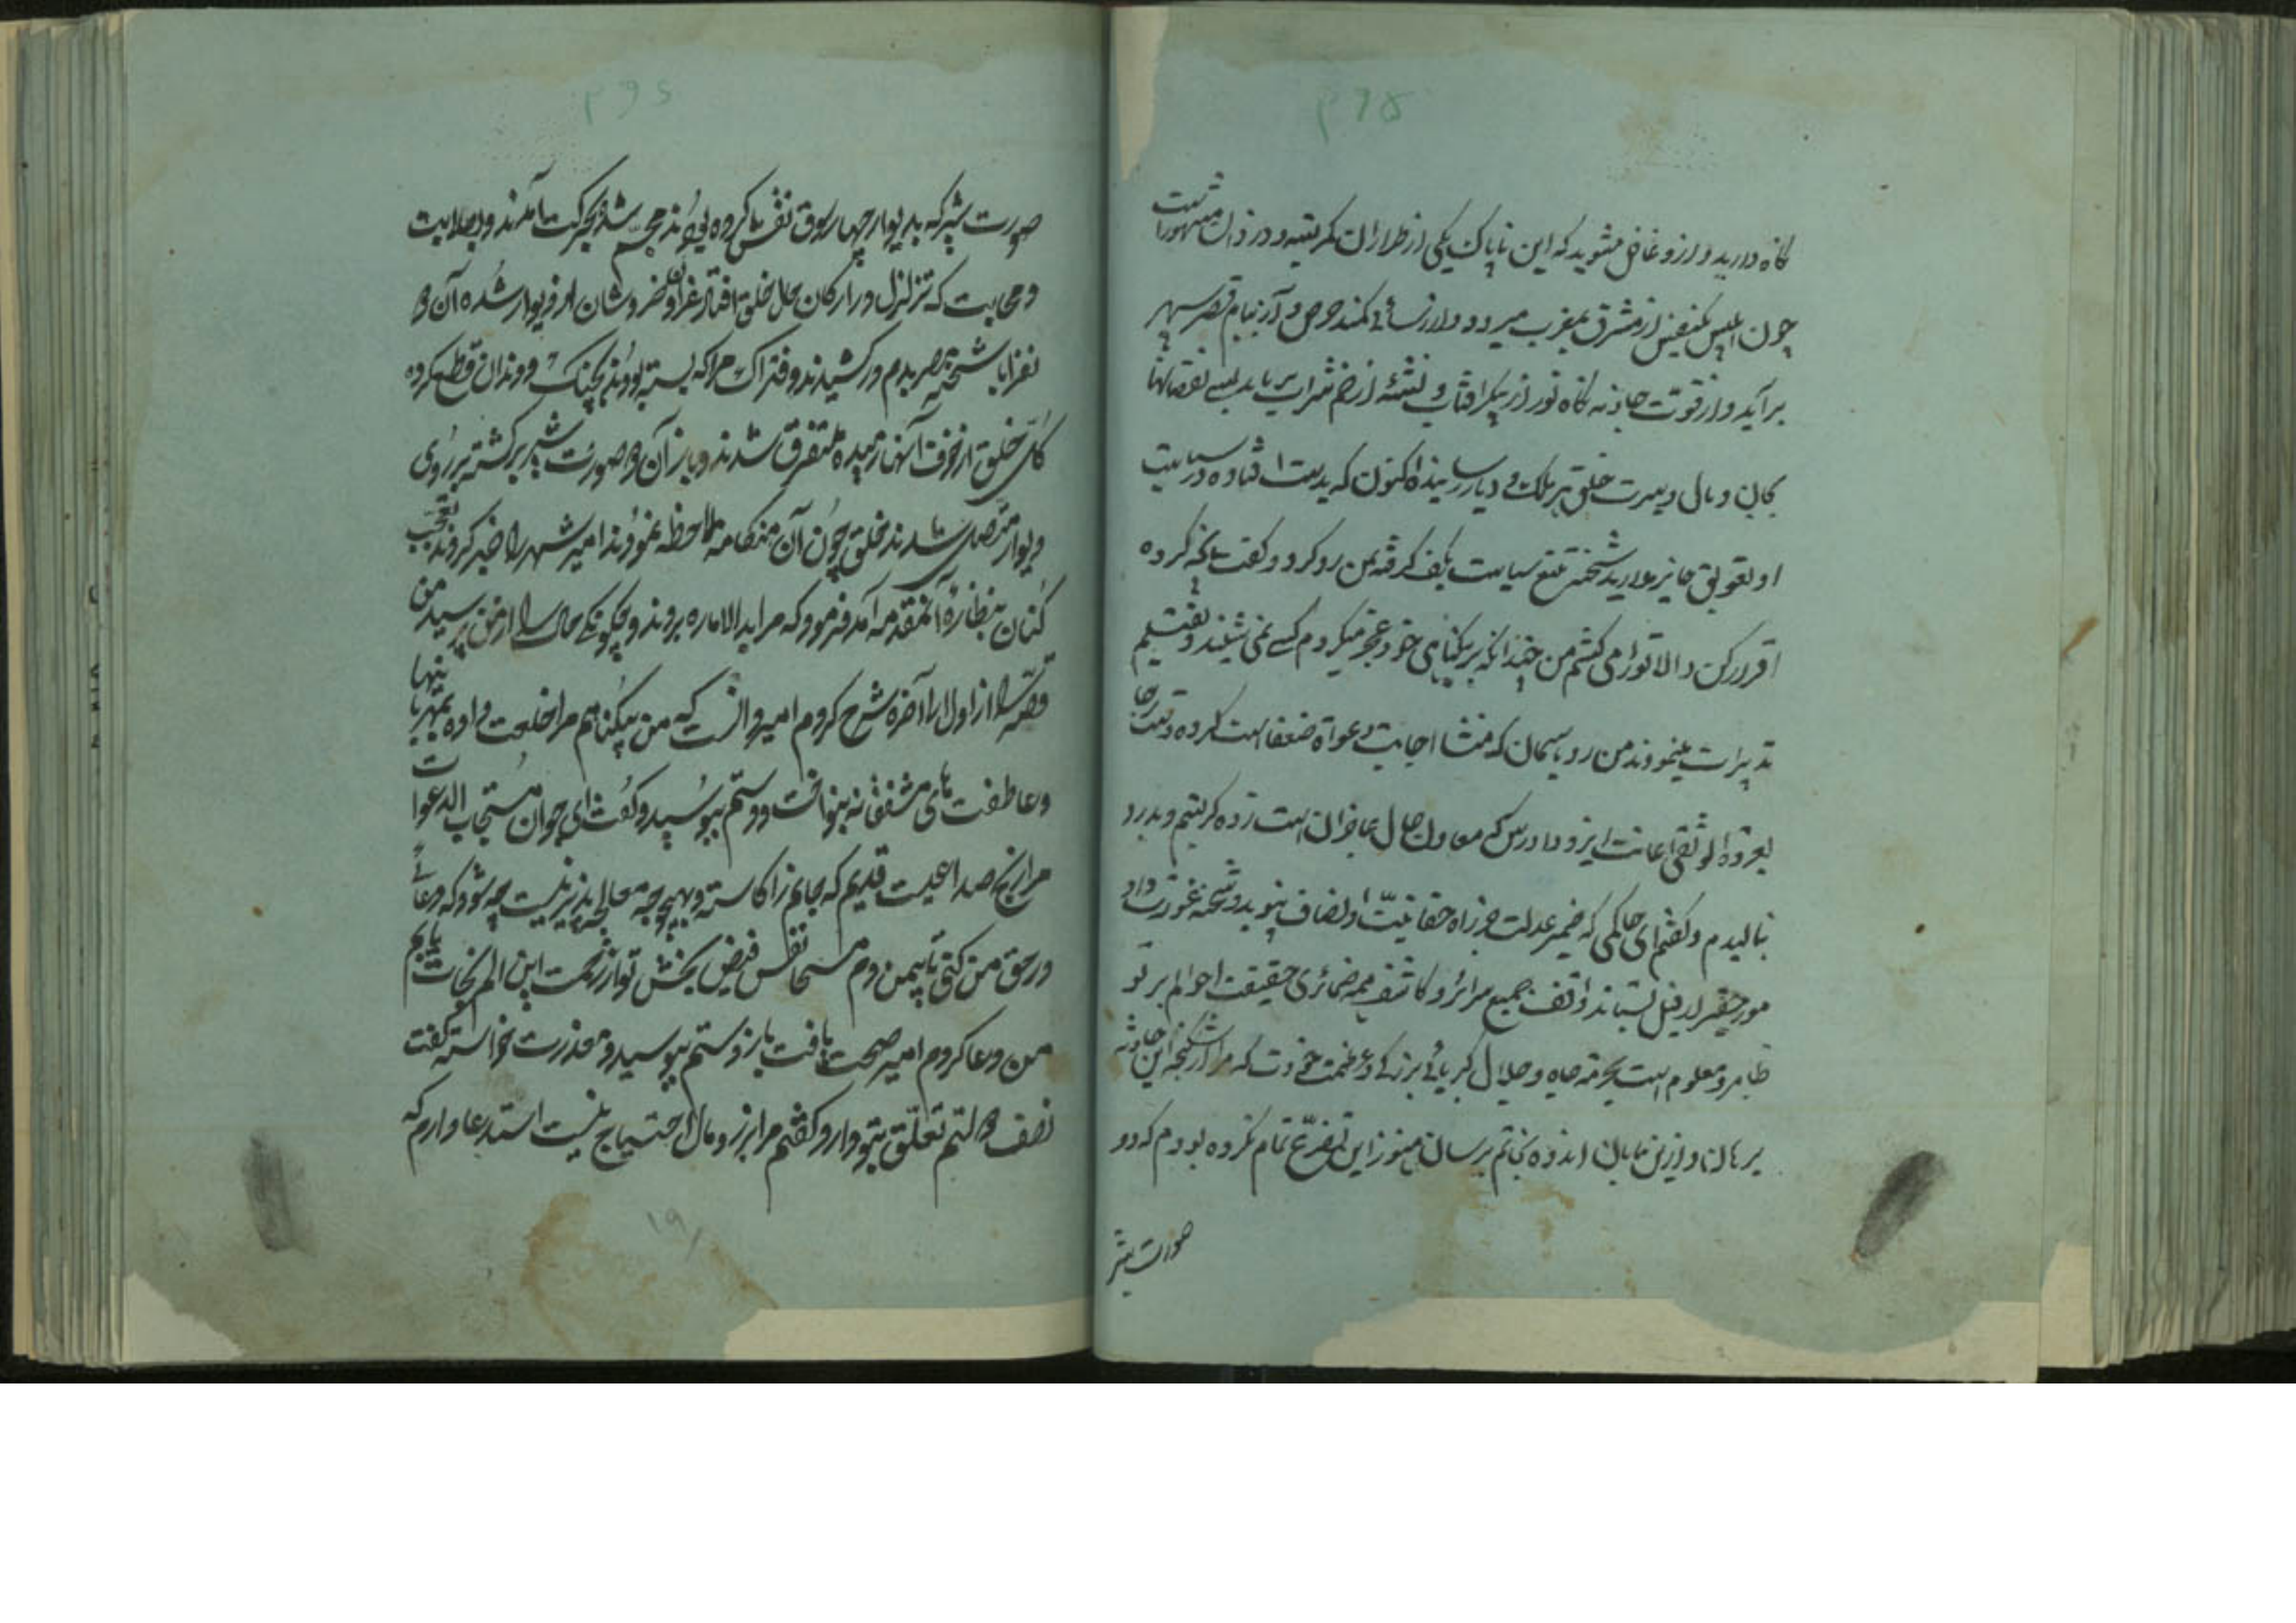 نگاه دارید و ازو غافل مشوید که این ناپاک یکی از طراران کهربتیه و دزدان مشهور است
چون ابلیس از مشرق بمغرب میرود و از رسائی کمند حرص و آز ببام قصر سپهر
برآید و از قوت جاذبه نگاه نور از پیکر آفتاب و نشئه از خم شراب برباید بسے نقصانها
بجان و مال و سرت خلق هر ملک و دیار رسانیده اکنون که بدست افتاده در سیاست
او تعویق جایز مدارید شحنه تیغ سیاست بکف گرفته بمن رو کرد و گفت بآنچه کرده
اقرار کن و الا تو را می کشم من چندانکه بر بیگناهی خود عجز میکردم کسے نمی شنید و تفتیش
تدبیرات مینمودند من رو بآسمان که منشا اجابت دعوات ضعفا است کرده دست رجا
بعروة الوثقی اعانت ایزد دادرس که معاون حال عاجزان است زده گریستم و بدرد
نالیدم و گفتم ای حاکمی که خیمه عدلت جز راه حقانیت و انصاف نپوید و شحنه غورت داد
مور حقیر از فیل بستاند واقف جمیع سرائر و کاشف همه ضمائری حقیقت احوالم بر تو
ظاهر و معلوم است بحرمت جاه و جلال کبریائی بزرگی و عظمت خودت که مرا از شکنجه این حادثه
برهان و ازین بیابان اندوه نجاتم برسان هنوز این تضرع تمام نکرده بودم که دو
صورت شیر
صورت شیر که بدیوار چهار سوق نقش کرده بودند مجسم شده بحرکت آمدند و بصلابت
و مهابت که تزلزل در ارکان حال خلق افتاد غران و خروشان از دیوار شده آن دو
نفر را با شحنه بدم درکشیدند و فتراک مرا که بسته بودند بچنگ و دندان قطع کرده
کل خلق از خوف آنها رمیده متفرق شدند و باز آن دو صورت شیر برگشته بر روی
دیوار متصل شدند خلق چون آن هنگامه ملاحظه نمودند امیر شهر را خبر کردند تعجب
کنان بنظاره آنمقدمه آمد فرمود که مرا بدار الاماره بردند و چگونگی حال را از من پرسید من
قصه را از اول تا آخره شرح کردم امیر دانست که من بیگناهم مرا خلعت داده بمهربانیها
و عاطفت های مشفقانه بنواخت و دستم ببوسید و گفت ای جوان مستجاب الدعوات
مرا رنج صداعیست قدیم که جانم را کاسته و بهیچوجه معالجه پذیر نیست چه شود که دعائے
در حق من کنی تا بیمن دم مسیحا نفس فیض بخش تو از زحمت این الم نجات یابم
من دعا کردم امیر صحت یافت باز دستم ببوسید و معذرت خواسته گفت
نصف دولتم تعلق بتو دارد گفتم مرا بزر و مال احتیاج نیست استدعا دارم که